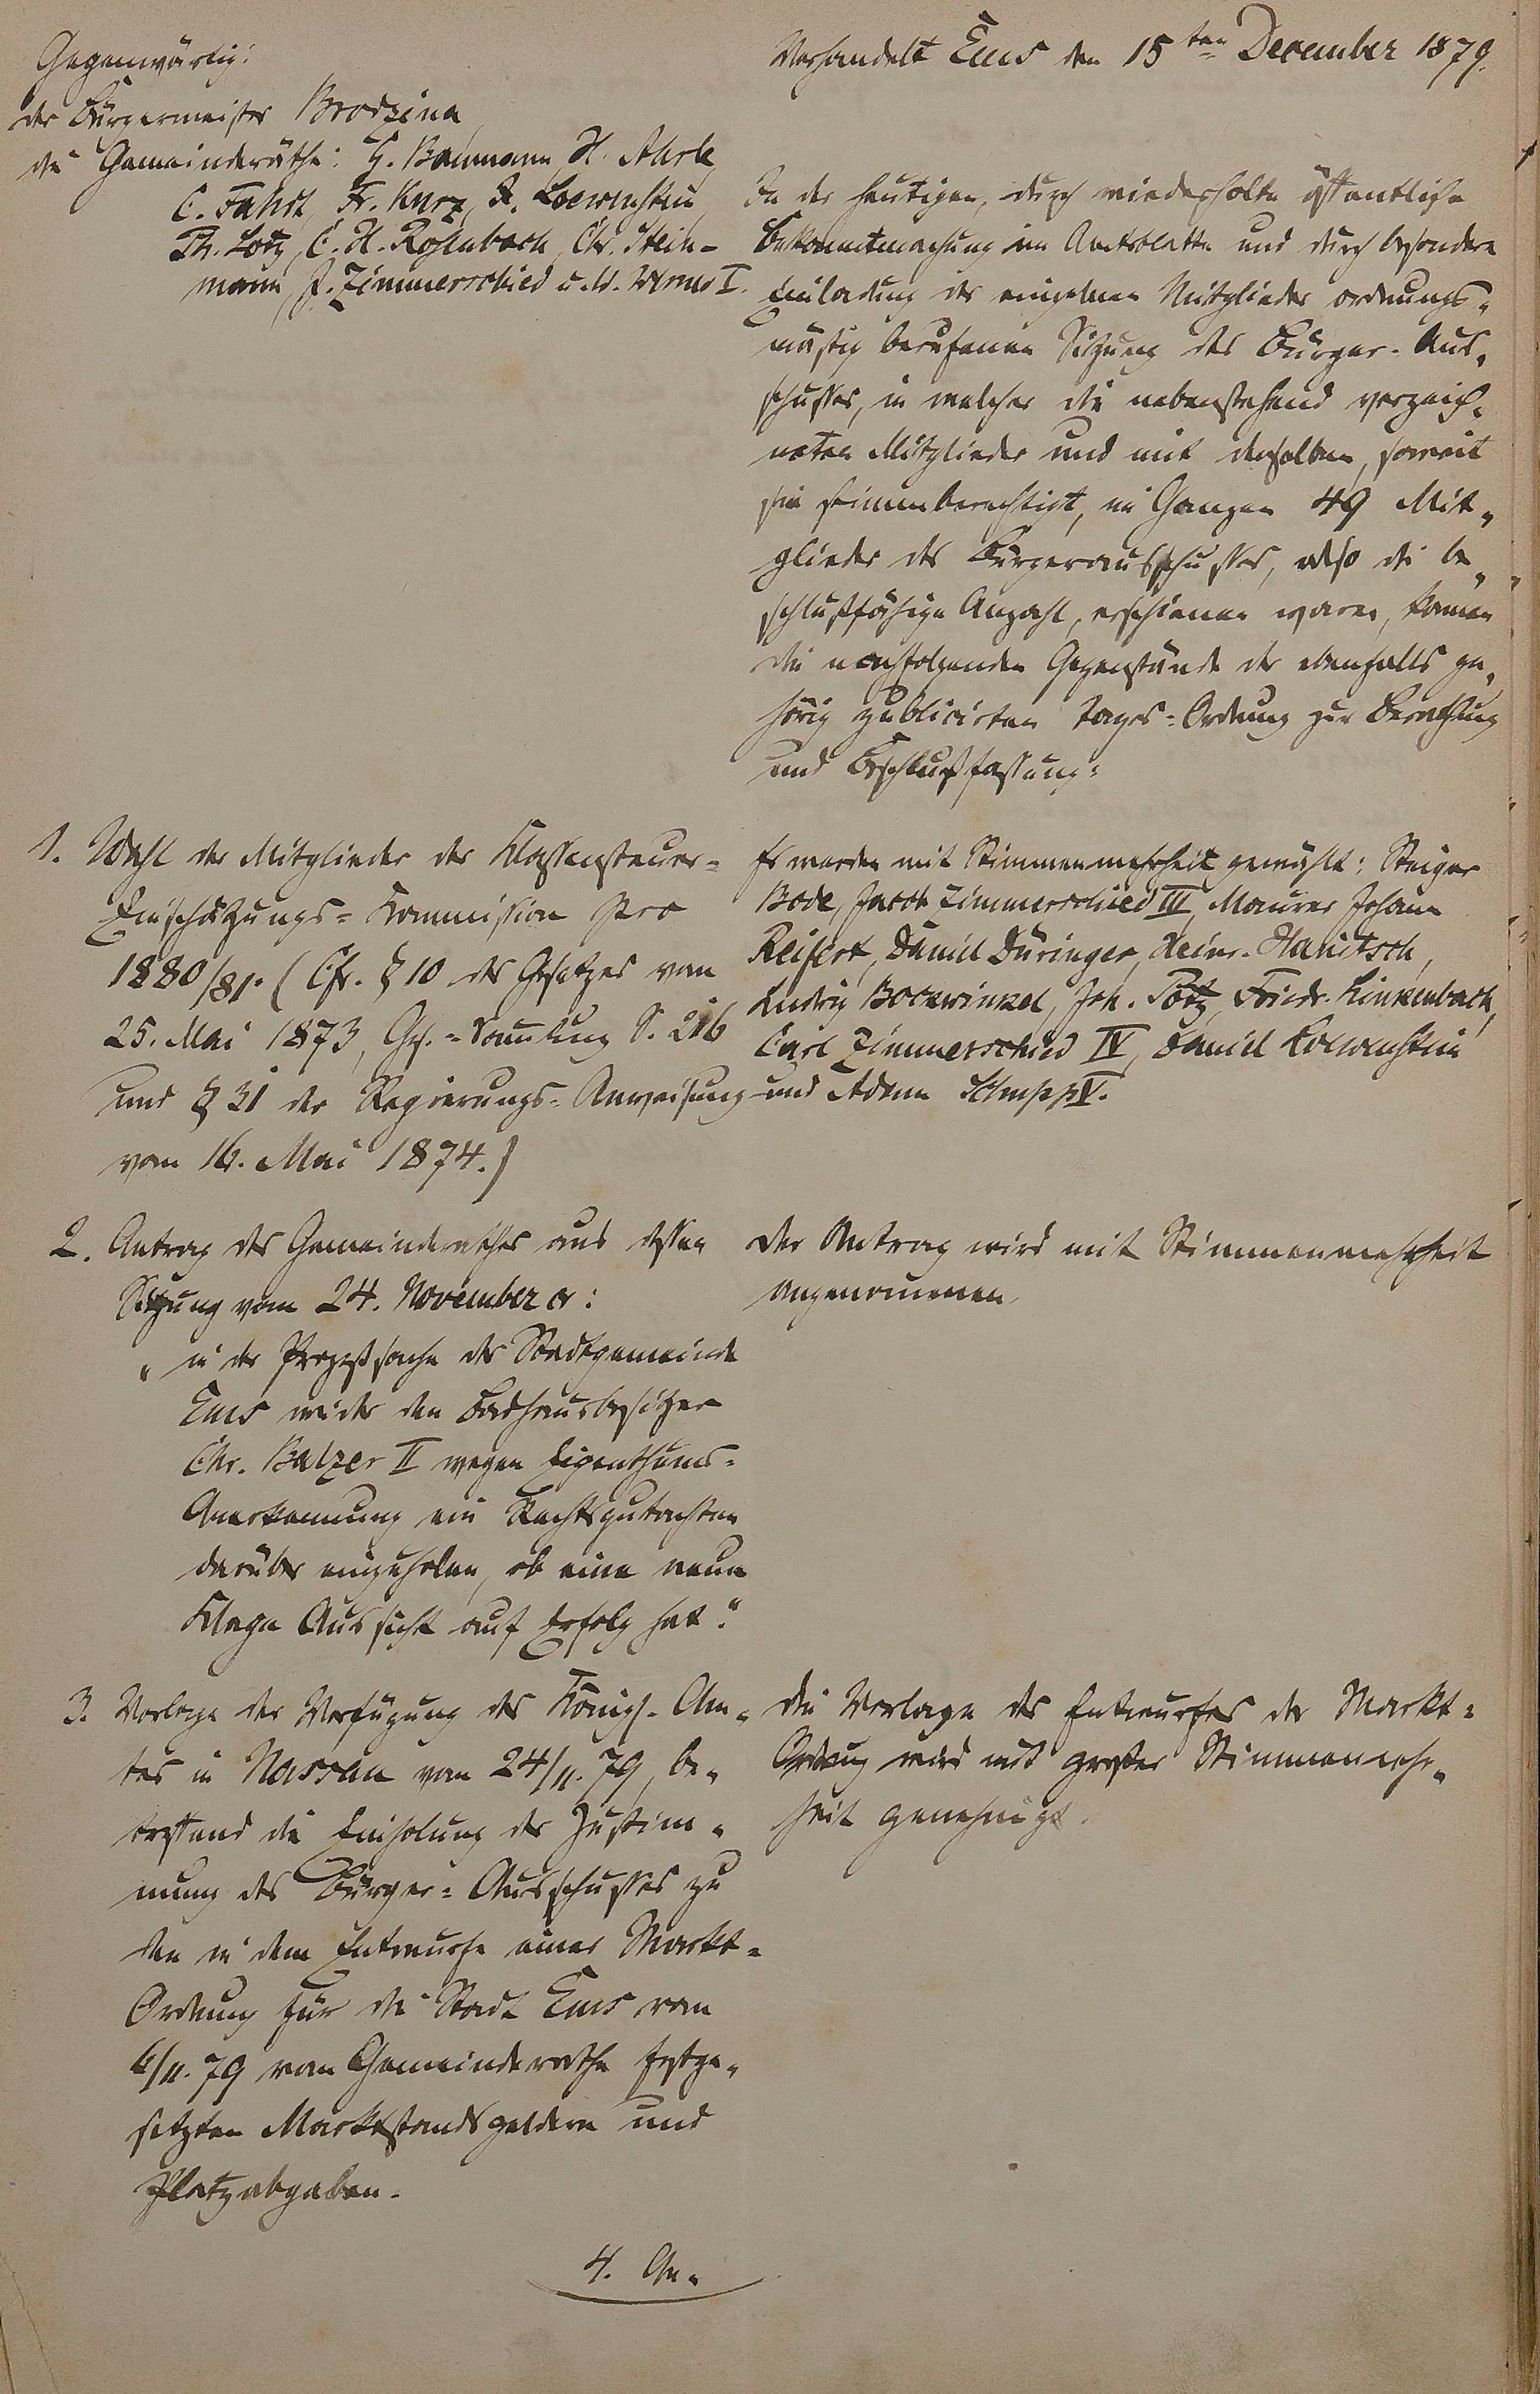 Gegenwärtig:
der Bürgermeister Brodzina
die Gemeinderäthe: G. Baumann, H. Ahrle,
C. Fahdt, Fr. Kurz, A. Loewenstein,
Th. Lotz, C. H. Rosenbach, Chr. Stein-
mann, J. Zimmerschied u. W. I.
Verhandelt Ems den 15ten December 1879.
In der heutigen, durch wiederholte öffentliche
Bekanntmachung im Amtsblatte und durch besondere
Einladung der einzelnen Mitglieder ordnungs-
mäßig berufenen Sitzung des Bürger-Aus-
schusses, in welcher die nebenstehend verzeich-
neten Mitglieder und mit denselben, soweit
sie stimmberechtigt, im Ganzen 49 Mit-
glieder des Bürgerausschusses, also die be-
schlußfähige Anzahl, erschienen waren, kamen
die nachfolgenden Gegenstände der ebenfalls ge-
hörig publicirten Tages-Ordnung zur Berathung
und Beschlußfassung:
1. Wahl der Mitglieder der Klassensteuer-
Einschätzungs-Kommission pro
1880/81. (Cfr. § 10 des Gesetzes vom
25. Mai 1873, Ges.-Sammlung S. 216
und § 31 der Regierungs-Anweisung
vom 16. Mai 1874.)
Es werden mit Stimmenmehrheit gewählt: Steiger
Bode, Jacob Zimmerschied III, Maurer Johann
Reifert, Daniel Düringer, Heinr. Hanitsch,
Ludwig Bockwinkel, Joh. Potz, Friedr. Linkenbach,
Carl Zimmerschied IV, Daniel Loewenstein
und Adam V.
2. Antrag des Gemeinderathes aus dessen
Sitzung vom 24. November cr:
„in der Prozeßsache der Stadtgemeinde
Ems wider den Badhausbesitzer
Chr. Balzer II wegen Eigenthums-
Anerkennung ein Rechtsgutachten
darüber einzuholen, ob eine neue
Klage Aussicht auf Erfolg hat."
Der Antrag wird mit Stimmenmehrheit
angenommen.
3. Vorlage der Verfügung des Königl. Am-
tes in Nassau vom 24/11. 79, be-
treffend die Einholung der Zustim-
mung des Bürger-Ausschusses zu
den in dem Entwurfe einer Markt-
Ordnung für die Stadt Ems vom
6/11. 79 vom Gemeinderathe festge-
setzten Marktstandsgeldern und
Platzabgaben.
Die Vorlage des Entwurfes der Markt-
Ordnung wird mit großer Stimmenmehr-
heit genehmigt.
4. An-